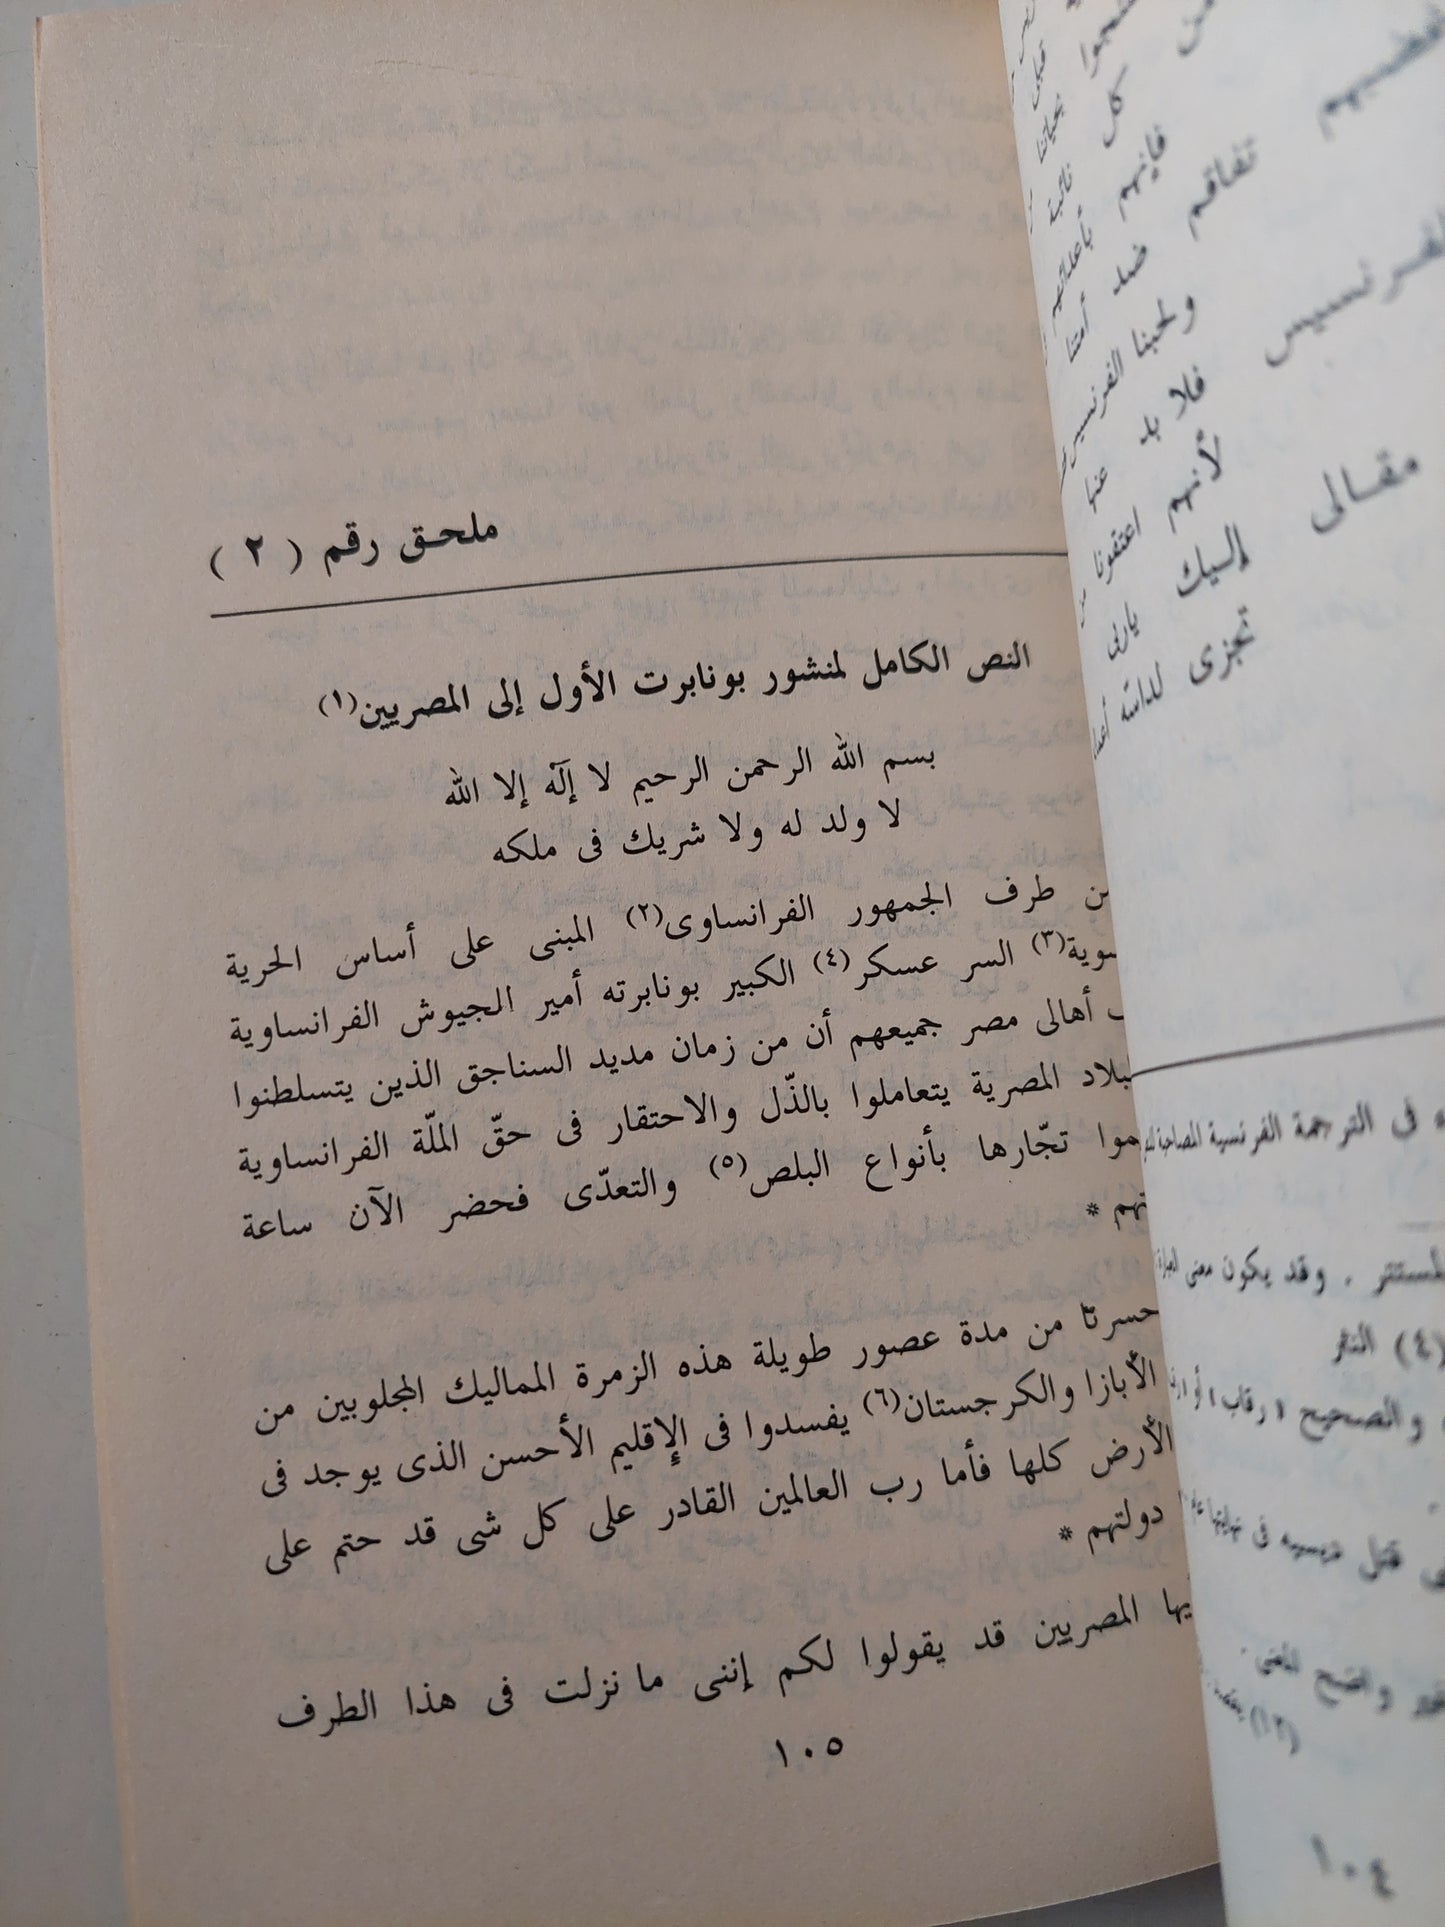 ملحق رقم ( ٢ )
النص الكامل لمنشور بونابرت الأول إلى المصريين(١)
بسم الله الرحمن الرحيم لا إلٓه إلا الله
لا ولد له ولا شريك فى ملكه
طرف الجمهور الفرانساوى(٢) المبنى على أساس الحرية
(٣) السر عسكر(٤) الكبير بونابرته أمير الجيوش الفرانساوية
أهالى مصر جميعهم أن من زمان مديد السناجق الذين يتسلطنوا
المصرية يتعاملوا بالذّل والاحتقار فى حقّ الملّة الفرانساوية
تجّارها بأنواع البلص(٥) والتعدّى فحضر الآن ساعة
*
حسرتا من مدة عصور طويلة هذه الزمرة المماليك المجلوبين من
الأبازا والكرجستان(٦) يفسدوا فى الإقليم الأحسن الذى يوجد فى
الأرض كلها فأما رب العالمين القادر على كل شى قد حتم على
دولتهم *
المصريين قد يقولوا لكم إننى ما نزلت فى هذا الطرف
١٠٥
تفاقم
فإنهم
ضد أمتنا
ولمحبنا الفرنسيس
فلا بد عنها
لأنهم اعتقونا من
مقالى إليك ياربى
تجزى
فى الترجمة الفرنسية
وقد يكون معنى
(٤)
والصحيح
١٠٤